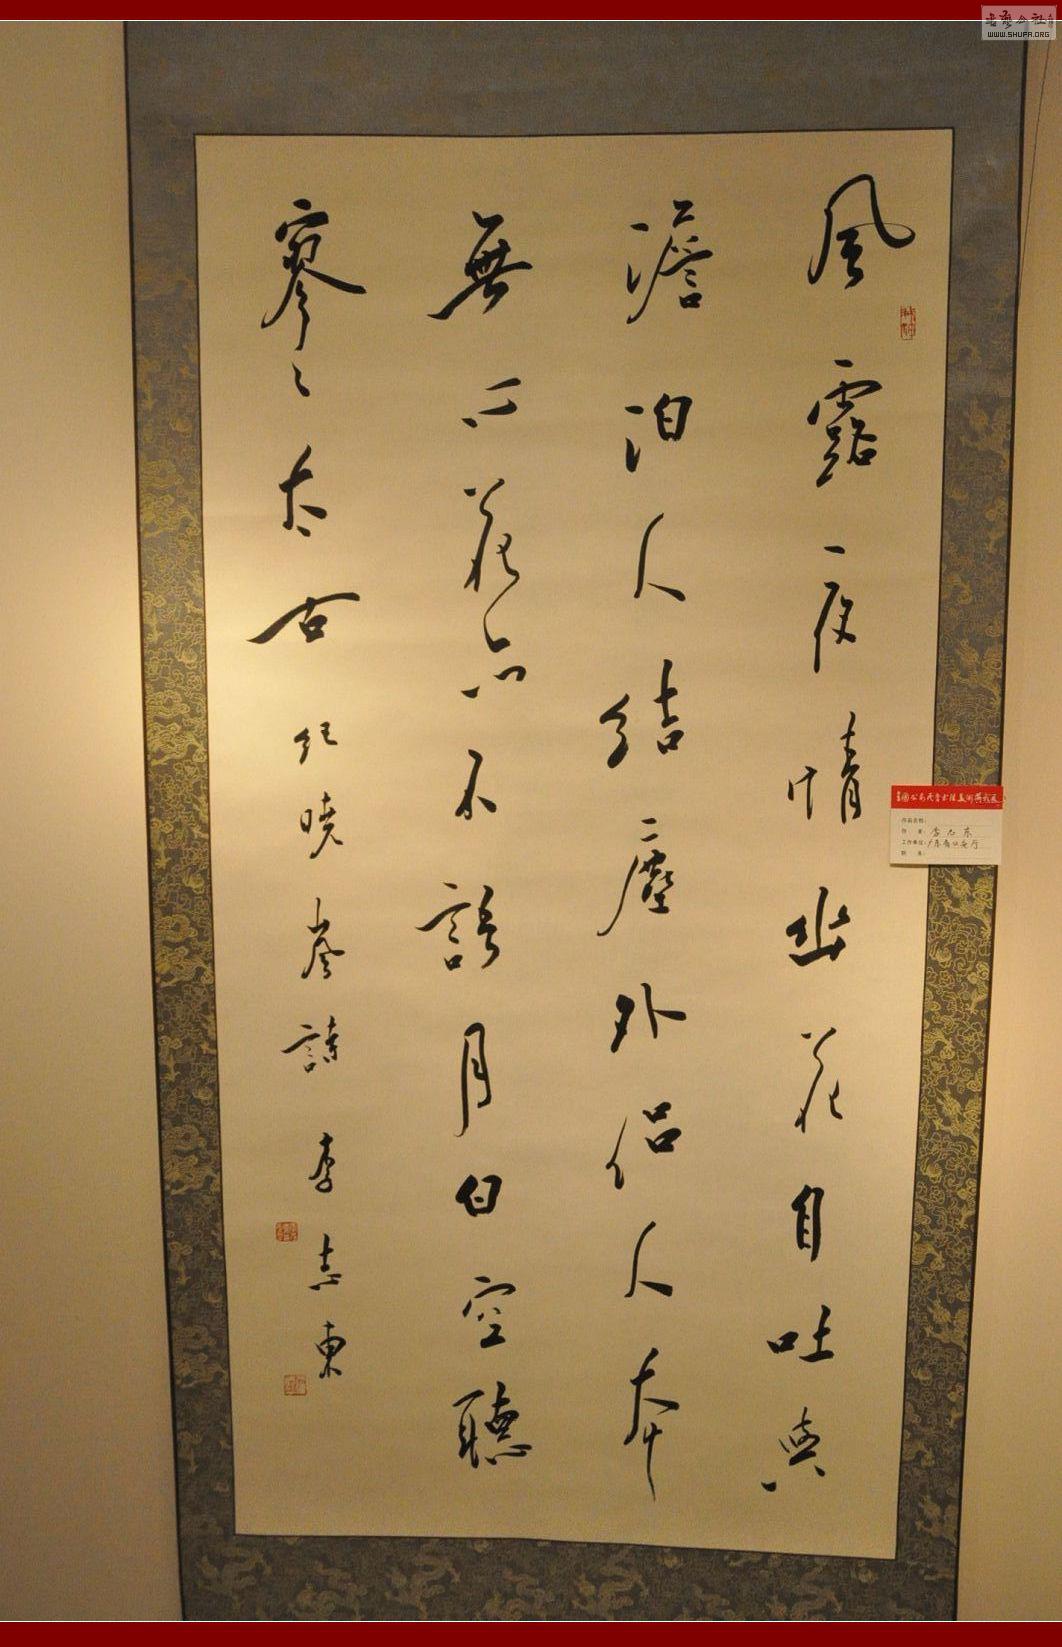 風露一夜情幽花自吐與
澹泊人結塵外侣人本
無心花亦不語月白空聽
寥々太古紀曉嵐詩李志東
全國公安民警書法美術攝影展
作品名称：
作　者：李志东
工作单位：广东省公安厅
职　务：
書法公社
WWW.SHUFA.ORG